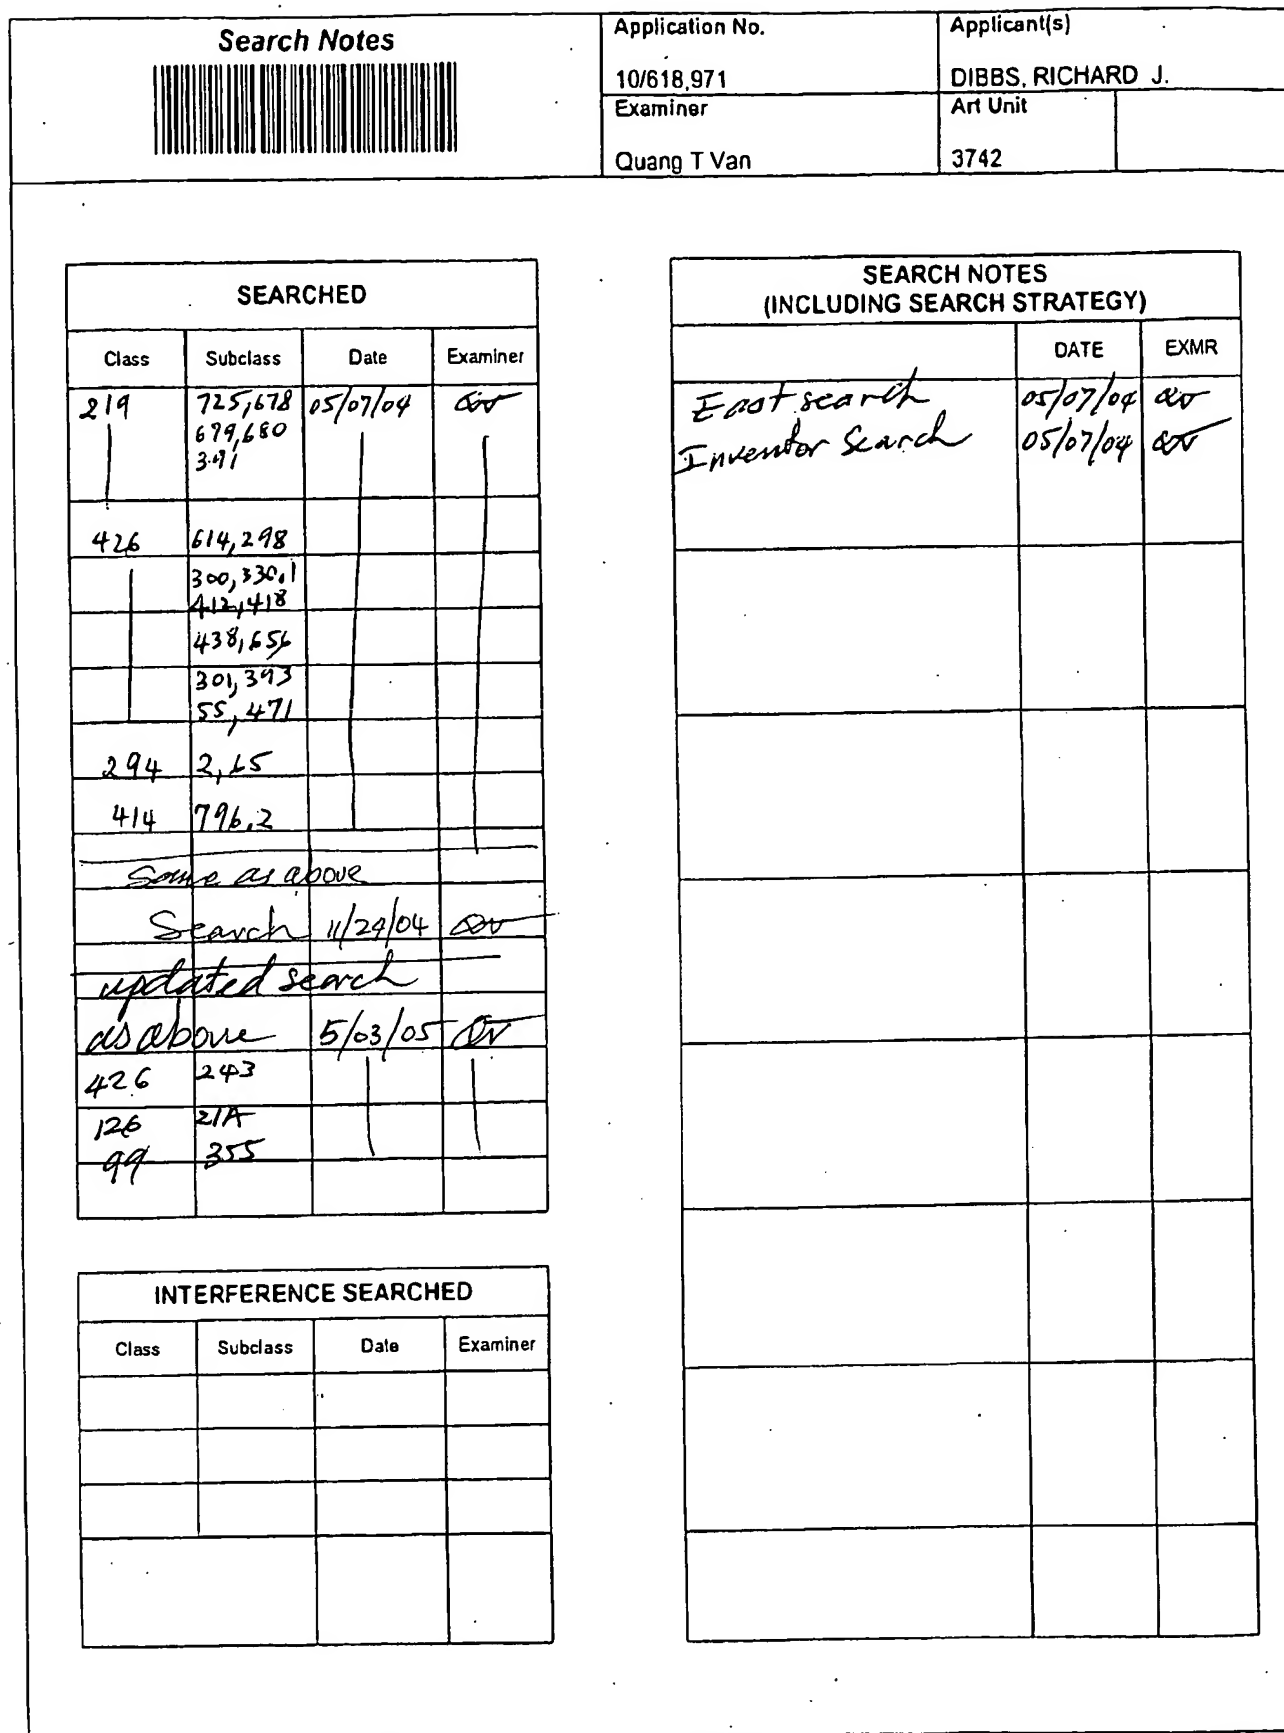 Search Notes
Application No.
10/618,971
Applicant(s)
DIBBS, RICHARD J.
Examiner
Quang T Van
Art Unit
3742
SEARCHED
Class Subclass Date Examiner
219 725,678 05/07/04 QV
679,680
391
426 614,298
300,330.1
412,418
438,656
301,393
55,471
294 2,65
414 796.2
Same as above
Search 11/29/04 QV
updated search
as above 5/03/05 QV
426 243
126 21A
99 355
INTERFERENCE SEARCHED
Class Subclass Date Examiner
SEARCH NOTES
(INCLUDING SEARCH STRATEGY)
DATE EXMR
East search 05/07/04 QV
Inventor Search 05/07/04 QV